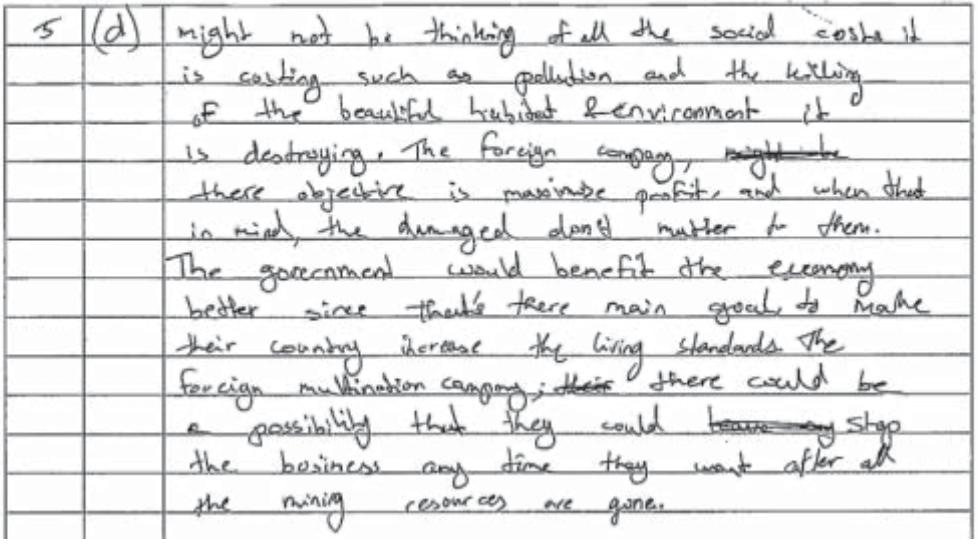 5 (d) might not be thinking of all the social costs it
is costing such as pollution and the killing
of the beautiful habitat & environment it
is destroying. The foreign company, might be
there objective is maximise profit, and when that
in mind, the damaged don't matter to them.
The government would benefit the economy
better since that's there main goal, to make
their country increase the living standards. The
foreign multination company; their there could be
a possibility that they could leave any stop
the business any time they want after all
the mining resources are gone.